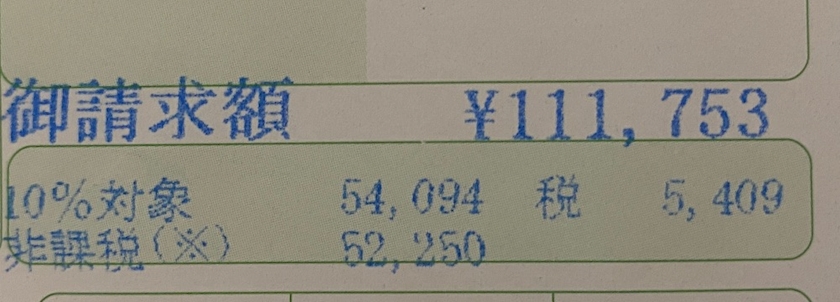 御請求額 ¥111,753
10%対象 54,094 税 5,409
非課税(※) 52,250